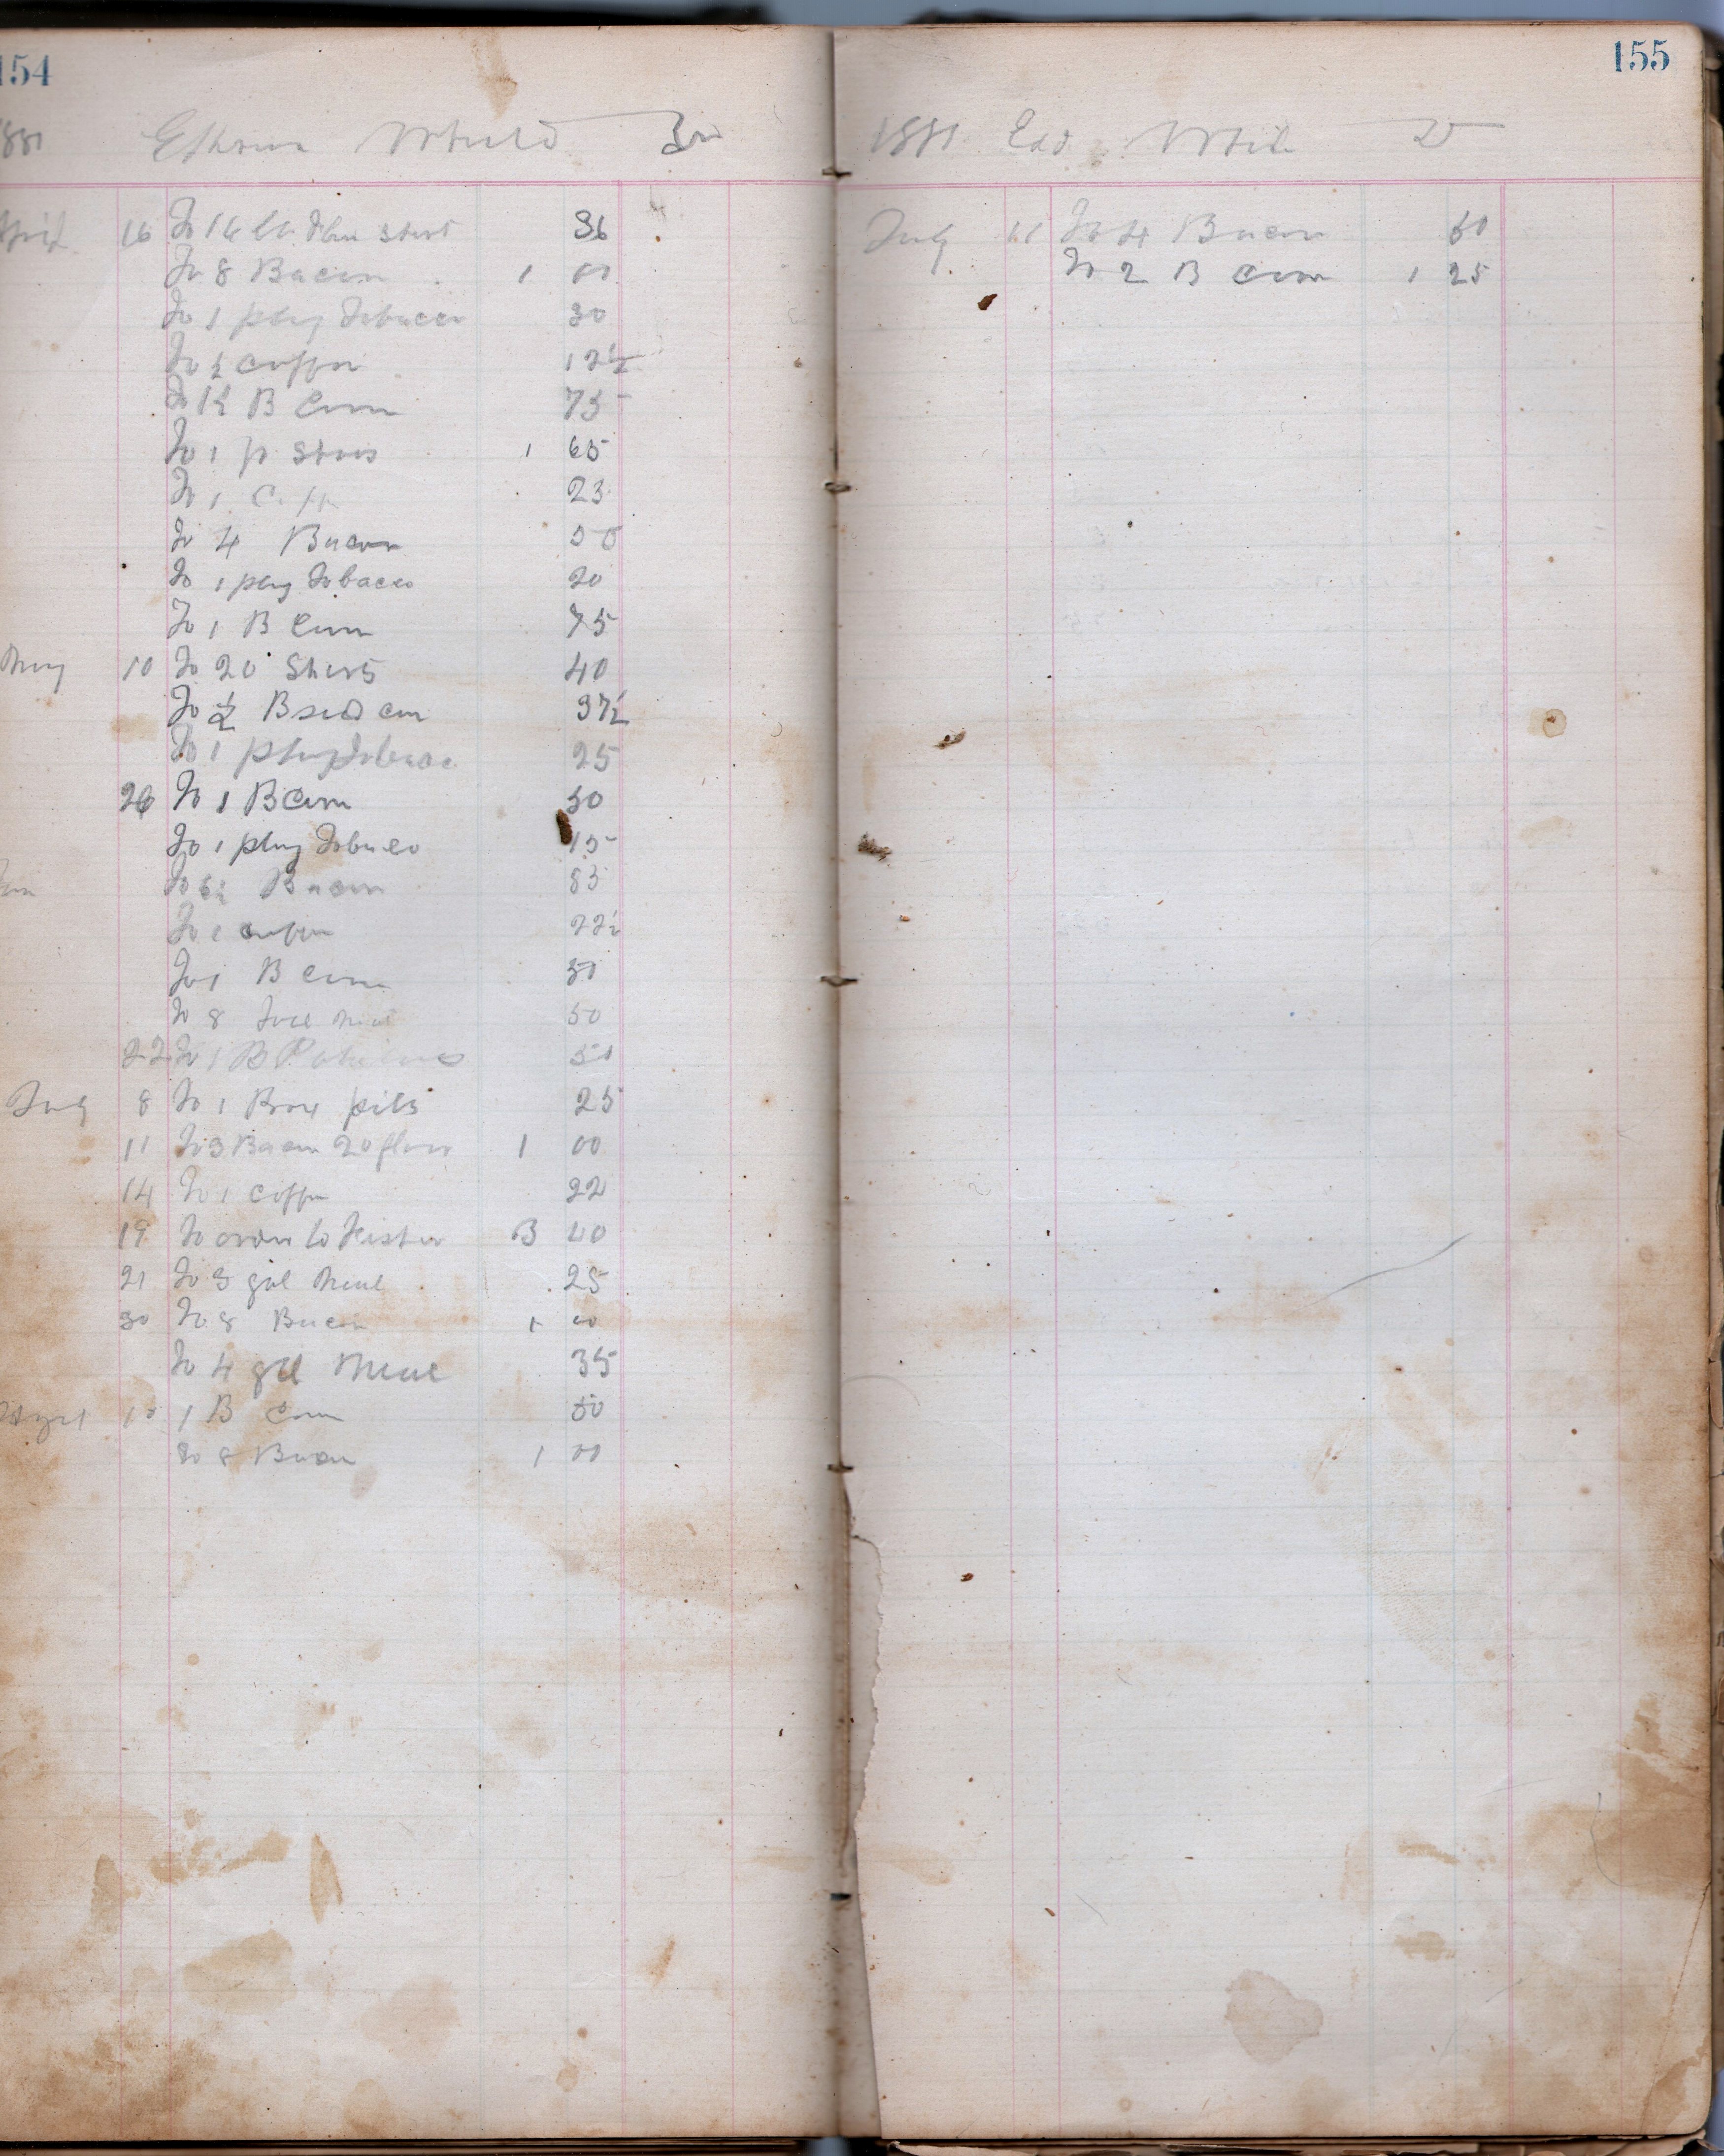 154
1881 Dr
April 16 To 16 36
To 8 Bacon 1 00
To 1 plug Tobacco 30
To ½ coffee 12½
To 1½ B Corn 75
To 1 p Shoes 1 65
To 1 23
To 4 Bacon 50
To 1 plug Tobacco 20
To 1 B Corn 75
May 10 To 20 40
To ½ B seed corn 37½
To 1 plug Tobacco 25
26 To 1 B Corn 50
To 1 plug Tobacco 15
To 6½ Bacon 83
To 1 coffee 22½
To 1 B Corn 50
To 8 50
22 To 1 B Potatoes 50
July 8 To 1 Box pills 25
11 To 3 Bacon 20 flour 1 00
14 To 1 coffee 22
19 To order to 00
21 To 3 gal Meal 25
30 To 8 Bacon 1 00
To 4 gal Meal 35
10 1 B Corn 50
To 8 Bacon 1 00
155
1881 Edd D
July 11 To 4 Bacon 60
To 2 B Corn 1 25